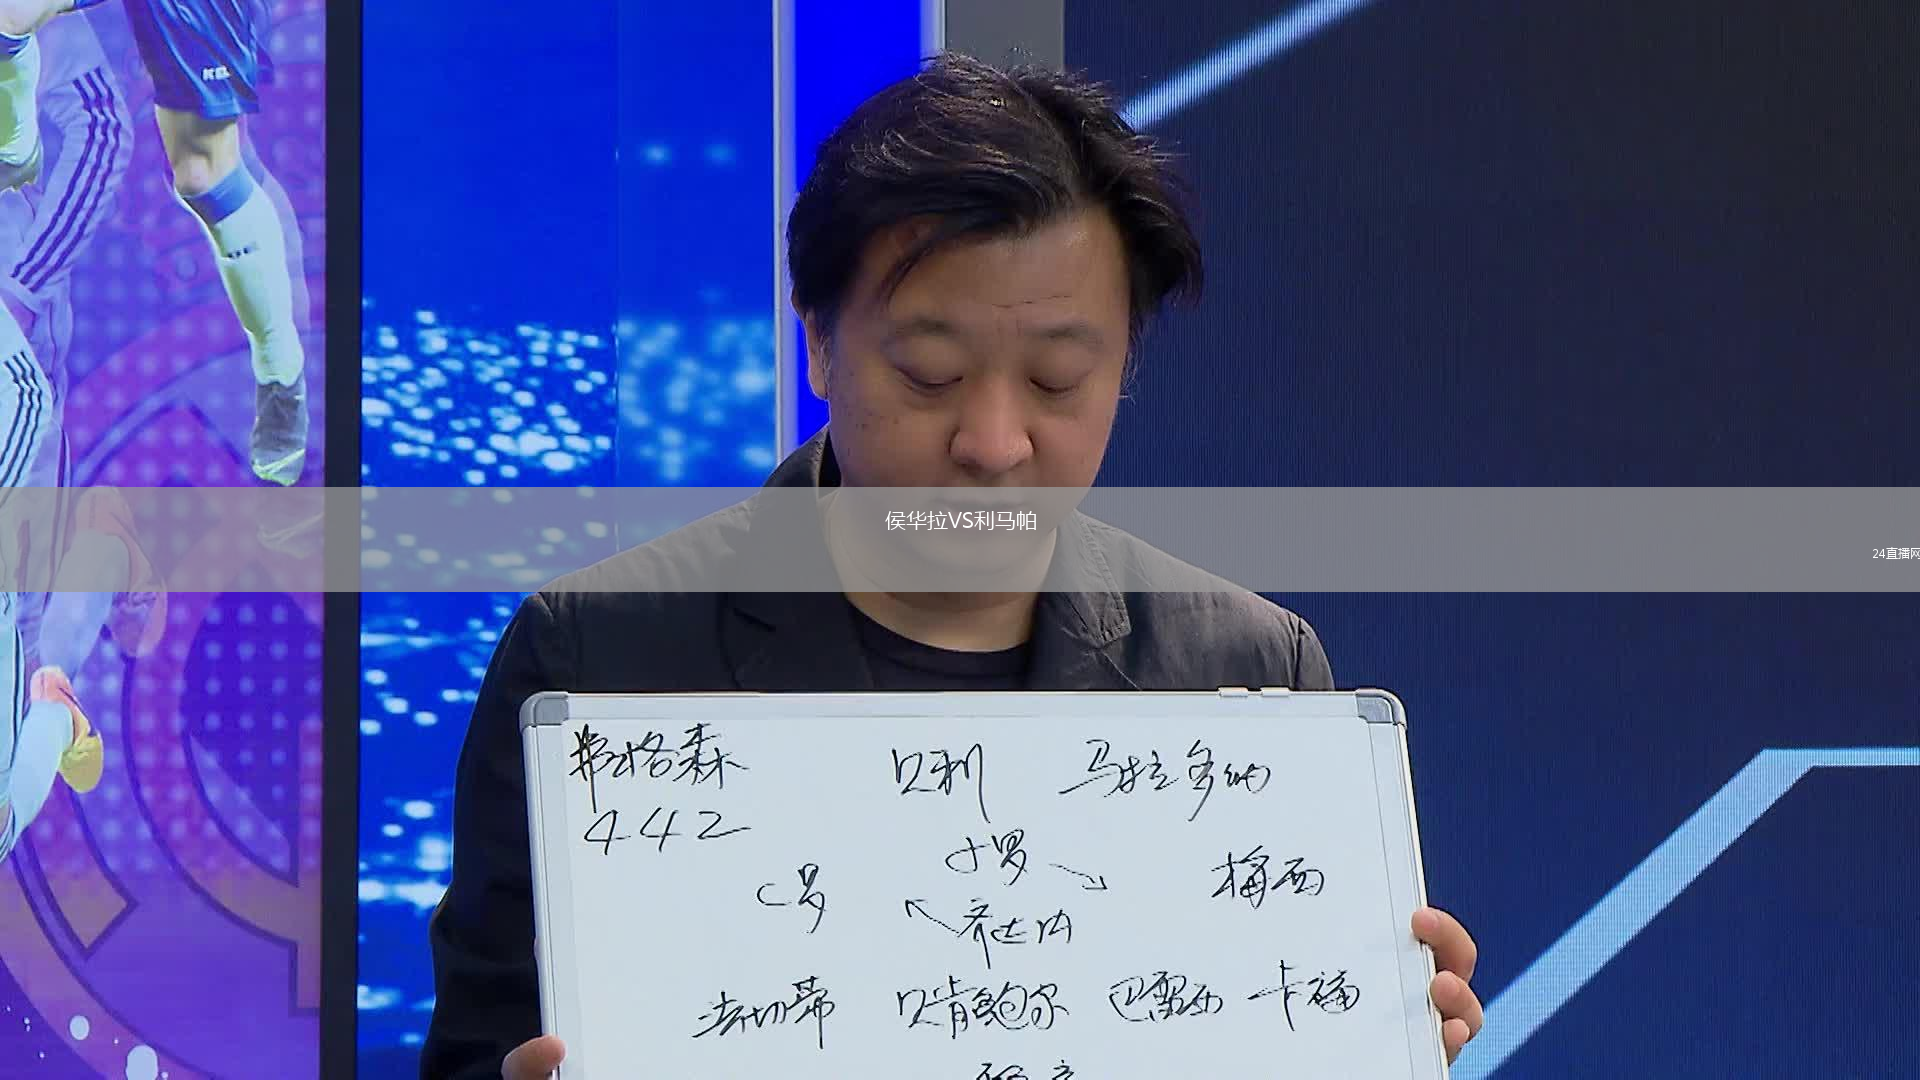 侯华拉VS利马帕
24直播网
弗格森 贝利 马拉多纳
442
小罗
C罗 梅西
齐达内
法切蒂 贝肯鲍尔 巴雷西 卡福